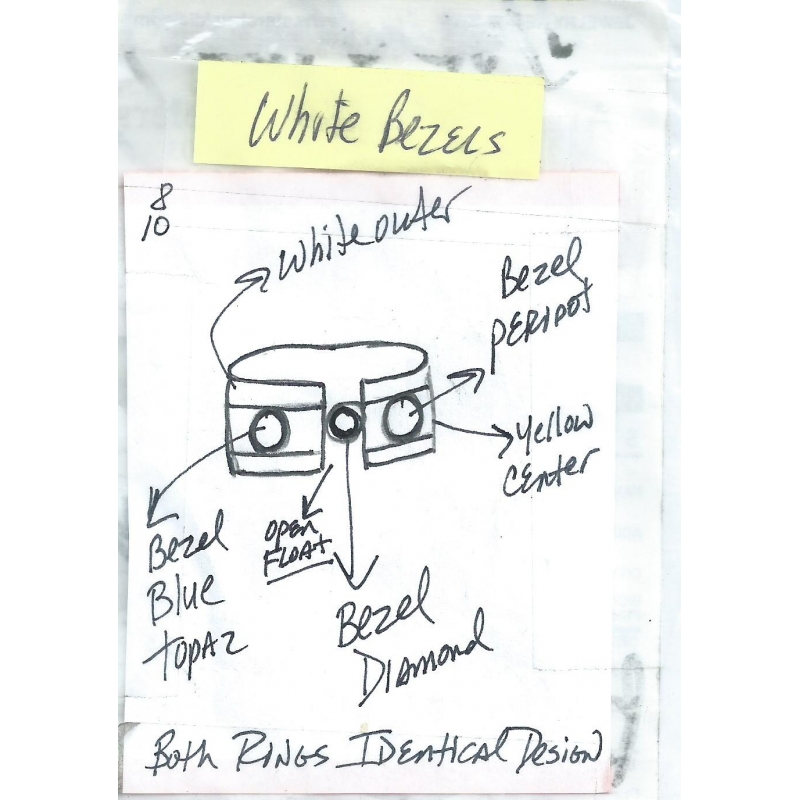 White Bezels
8
10
White outer
Bezel
PERIDOT
Yellow
CENTER
OPEN
FLOAT
Bezel
Blue
TOPAZ
Bezel
DIAMOND
Both RINGS IDENTICAL DESIGN